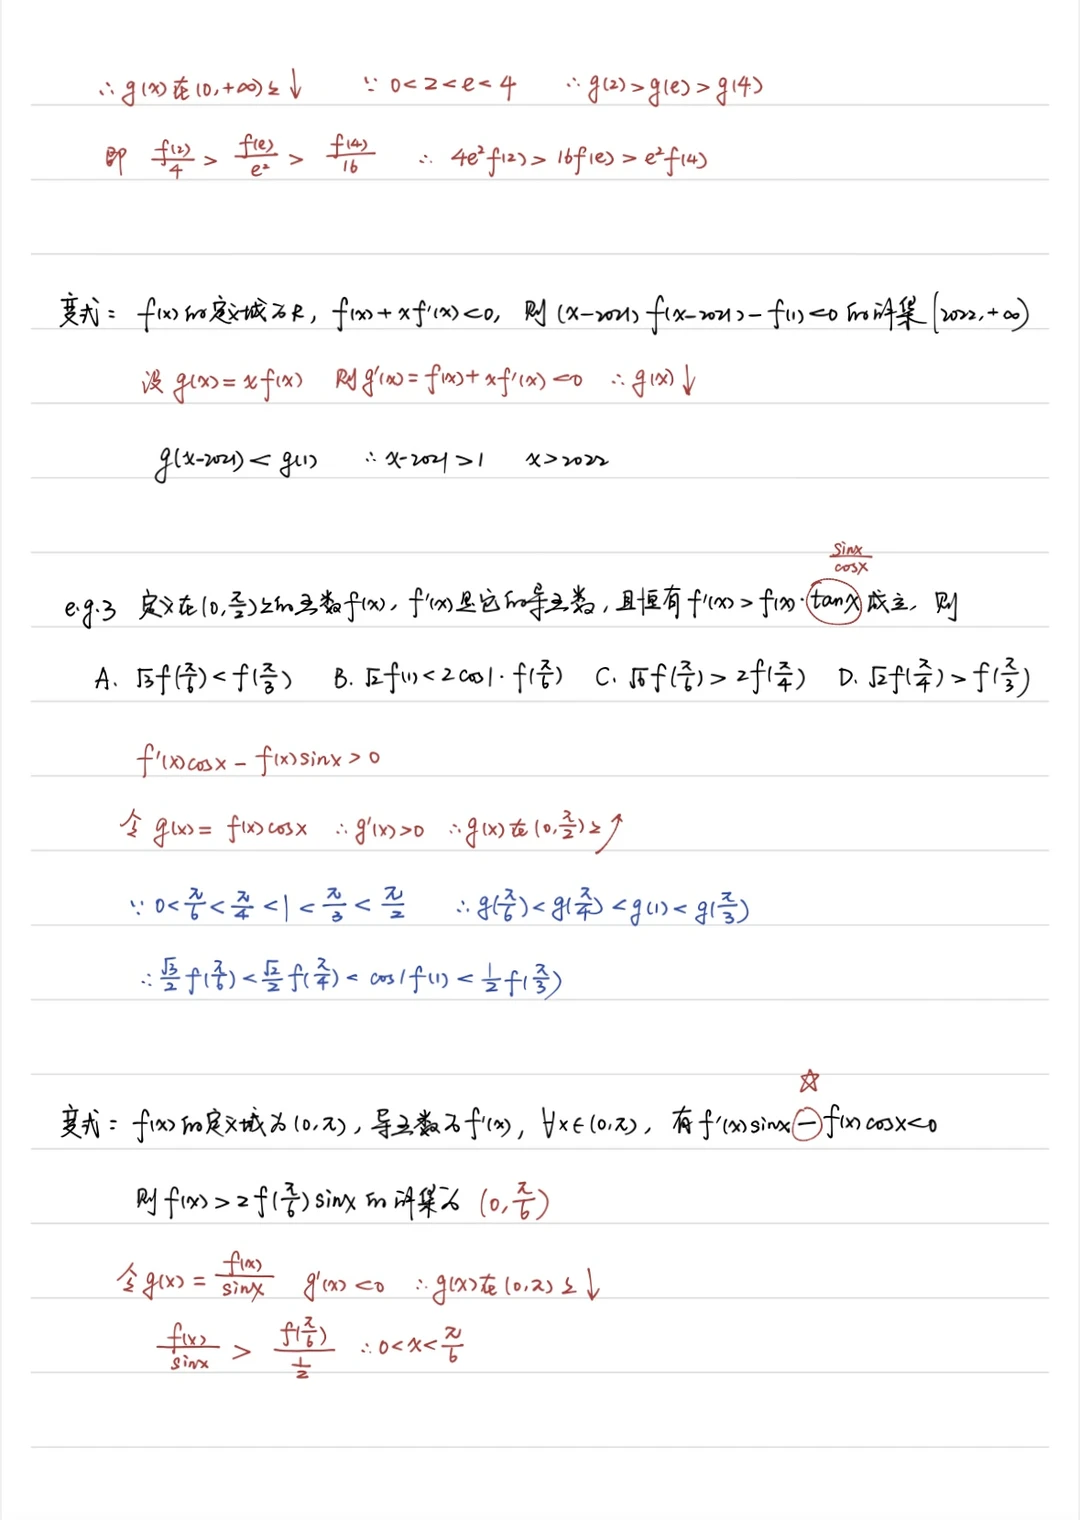 ∴ g(x)在(0,+∞)上↓ ∵ 0<2<e<4 ∴ g(2)>g(e)>g(4)
即 f(2)/4 > f(e)/e² > f(4)/16 ∴ 4e²f(2)>16f(e)>e²f(4)
变式: f(x)的定义域为R, f(x)+xf'(x)<0, 则(x-2021)f(x-2021)-f(1)<0的评集(2022,+∞)
设g(x)=xf(x) 则g'(x)=f(x)+xf'(x)<0 ∴g(x)↓
g(x-2021)<g(1) ∴x-2021>1 x>2022
sinx/cosx
e.g.3 定义在(0,π/2)上的函数f(x), f'(x)是它的导函数, 且恒有f'(x)>f(x)·tanx成立, 则
A. √3f(π/6)<f(π/3) B. √2f(1)<2cos1·f(π/6) C. √6f(π/6)>2f(π/4) D. √2f(π/4)>f(π/3)
f'(x)cosx-f(x)sinx>0
令g(x)=f(x)cosx ∴g'(x)>0 ∴g(x)在(0,π/2)上↗
∵0<π/6<π/4<1<π/3<π/2 ∴g(π/6)<g(π/4)<g(1)<g(π/3)
∴√3/2f(π/6)<√2/2f(π/4)<cos1f(1)<1/2f(π/3)
☆
变式: f(x)的定义域为(0,π), 导函数为f'(x), ∀x∈(0,π), 有f'(x)sinx-f(x)cosx<0
则f(x)>2f(π/6)sinx的评集为(0,π/6)
令g(x)=f(x)/sinx g'(x)<0 ∴g(x)在(0,π)上↓
f(x)/sinx > f(π/6)/(1/2) ∴0<x<π/6